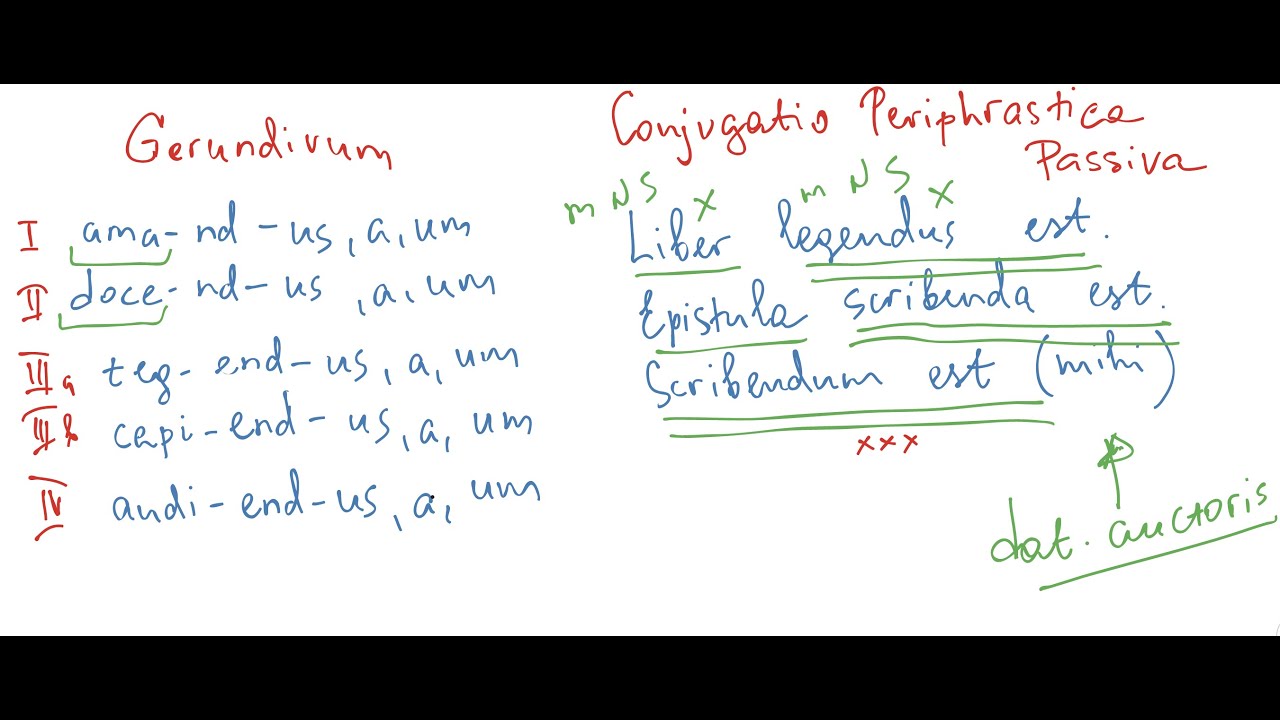 Gerundivum
I ama-nd-us, a, um
II doce-nd-us, a, um
III a teg-end-us, a, um
III b capi-end-us, a, um
IV audi-end-us, a, um
Conjugatio Periphrastica
Passiva
m N S x m N S x
Liber legendus est.
Epistula scribenda est.
Scribendum est (mihi)
x x x
dat. auctoris